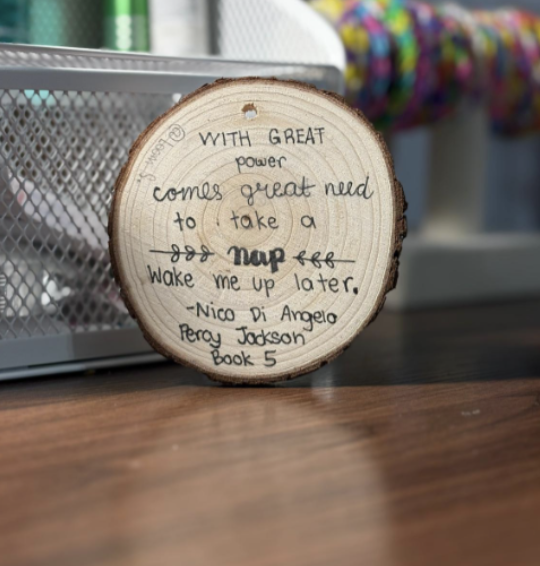 WITH GREAT
power
comes great need
to take a
nap
Wake me up later.
-Nico Di Angelo
Percy Jackson
Book 5